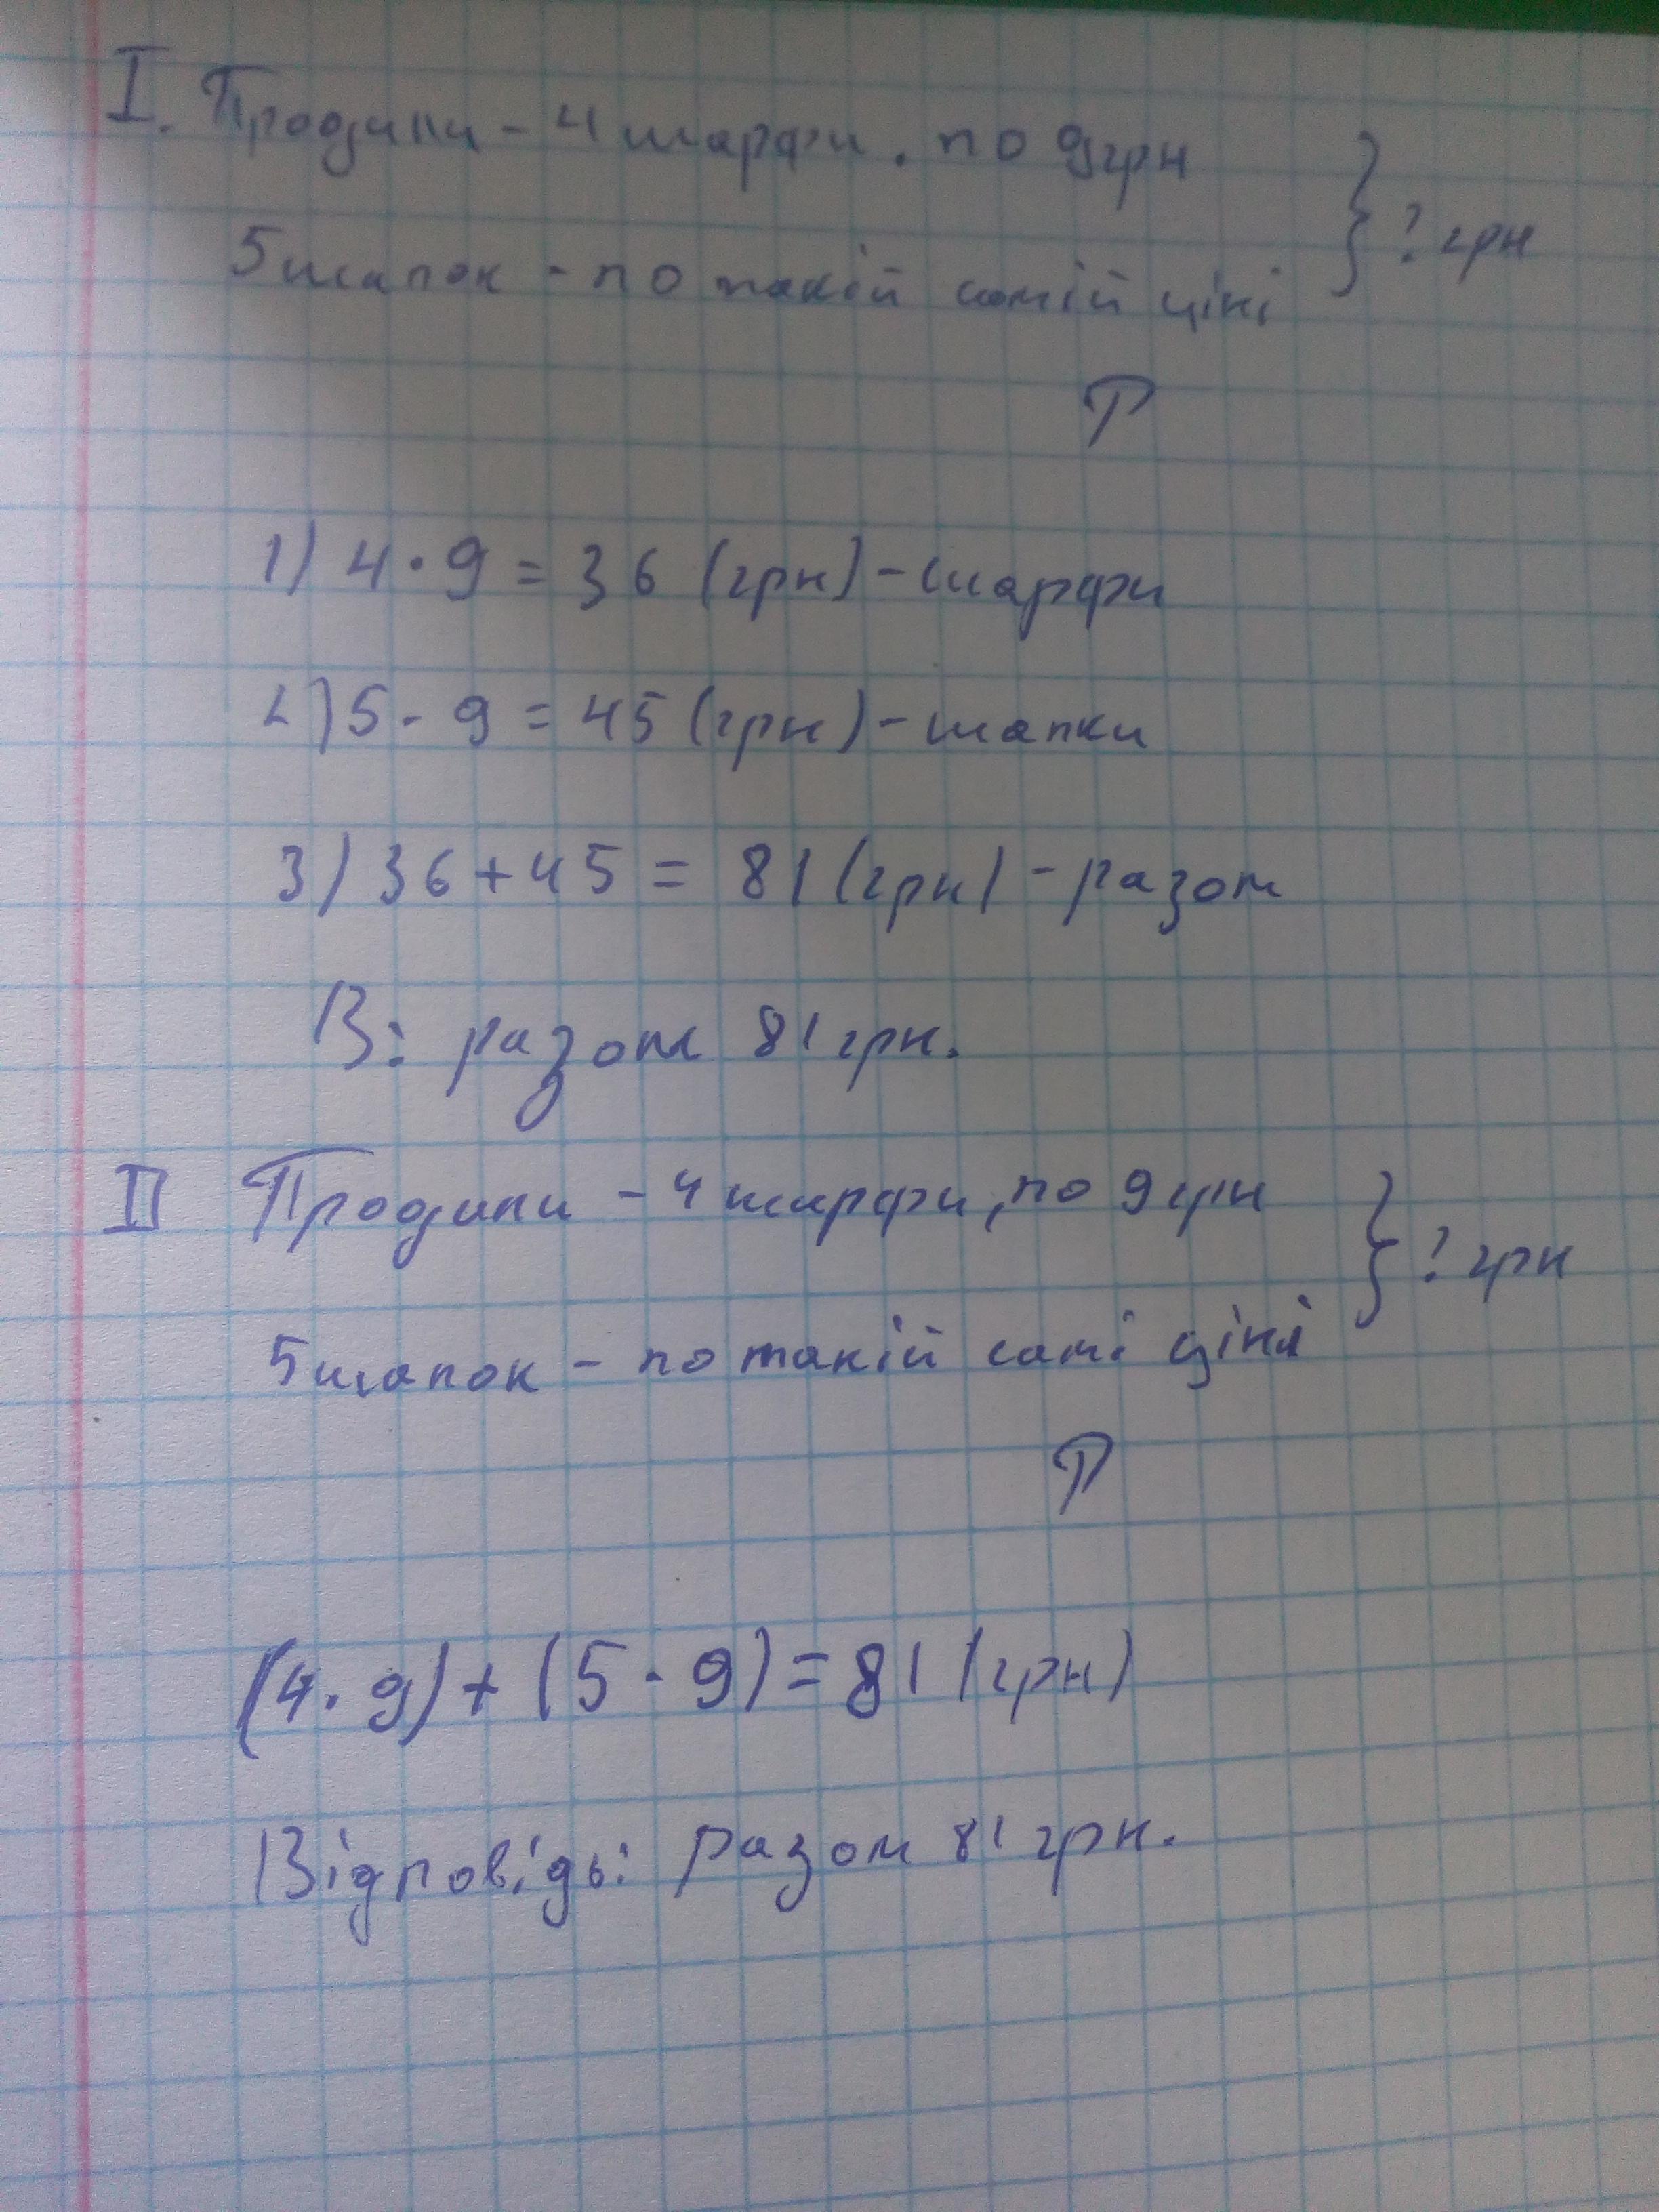 I. Продили - 4 шарфи. по 9 грн
5 шапок - по такій самій ціні
} ? грн
Р
1) 4 · 9 = 36 (грн) - шарфи
2) 5 · 9 = 45 (грн) - шапки
3) 36 + 45 = 81 (грн) - разом
В: разом 81 грн.
II Продили - 4 шарфи, по 9 грн
5 шапок - по такій самі ціні
} ? грн
Р
(4 · 9) + (5 · 9) = 81 (грн)
Відповідь: разом 81 грн.